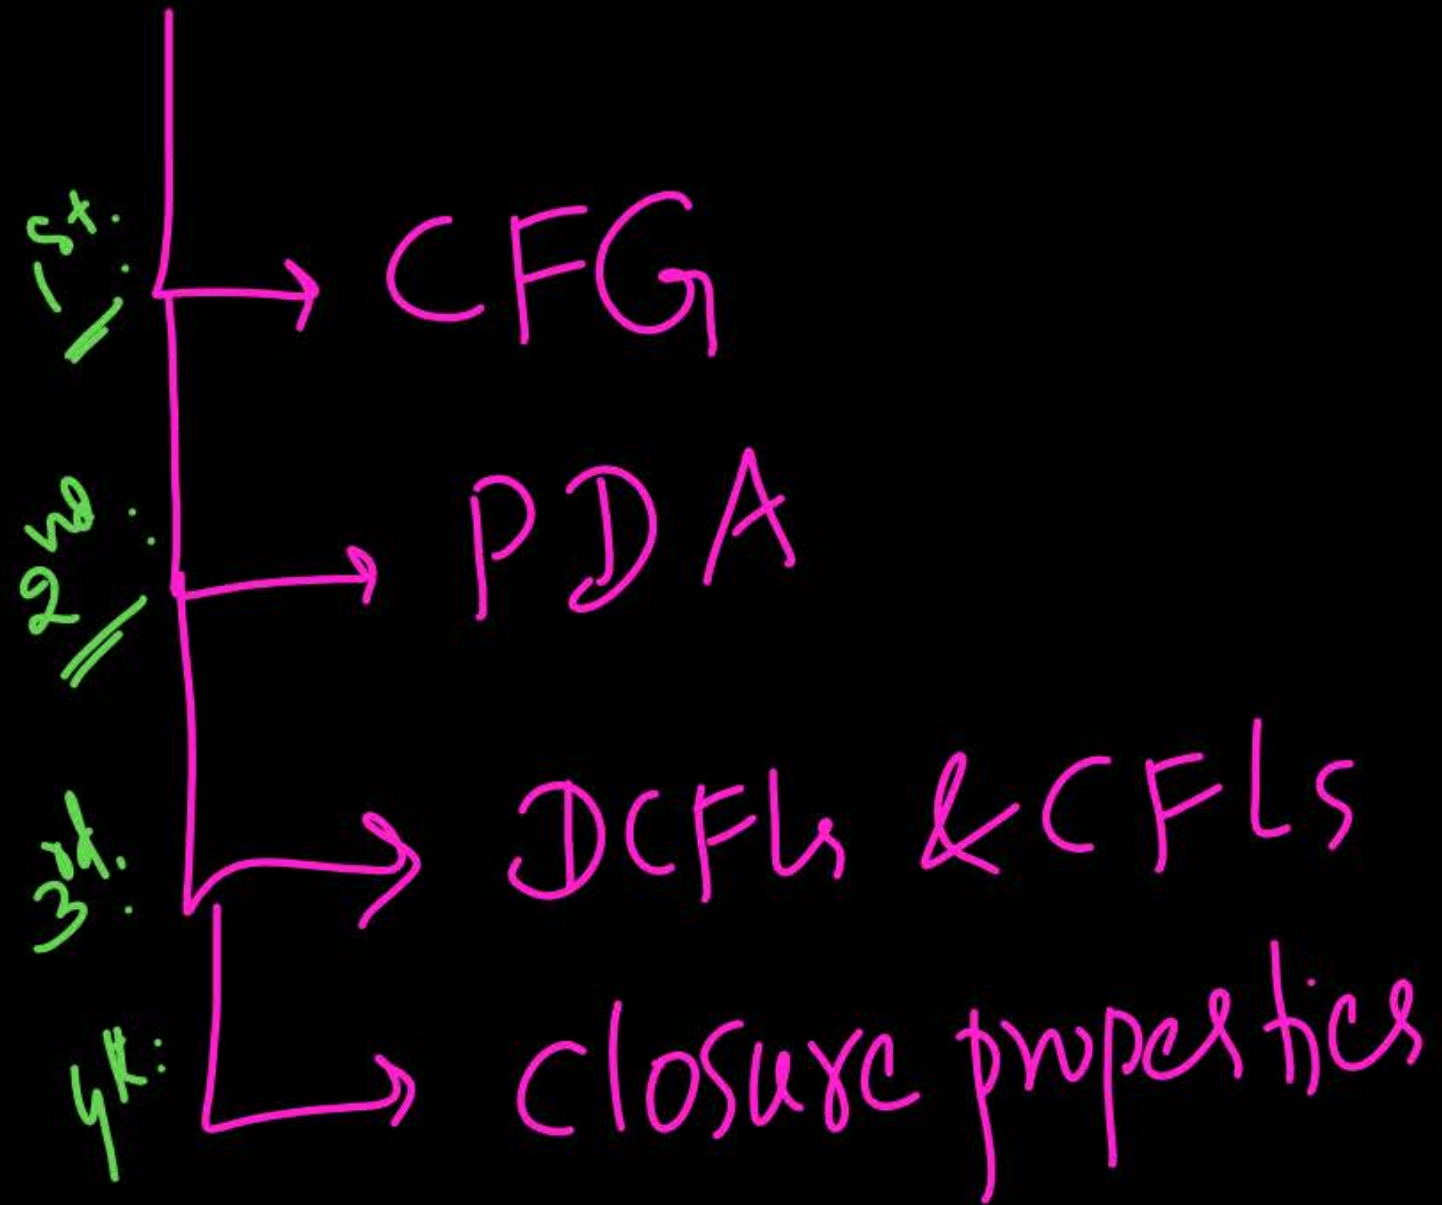 1st. : CFG
2nd. : PDA
3rd. : DCFLs & CFLs
4th: Closure properties